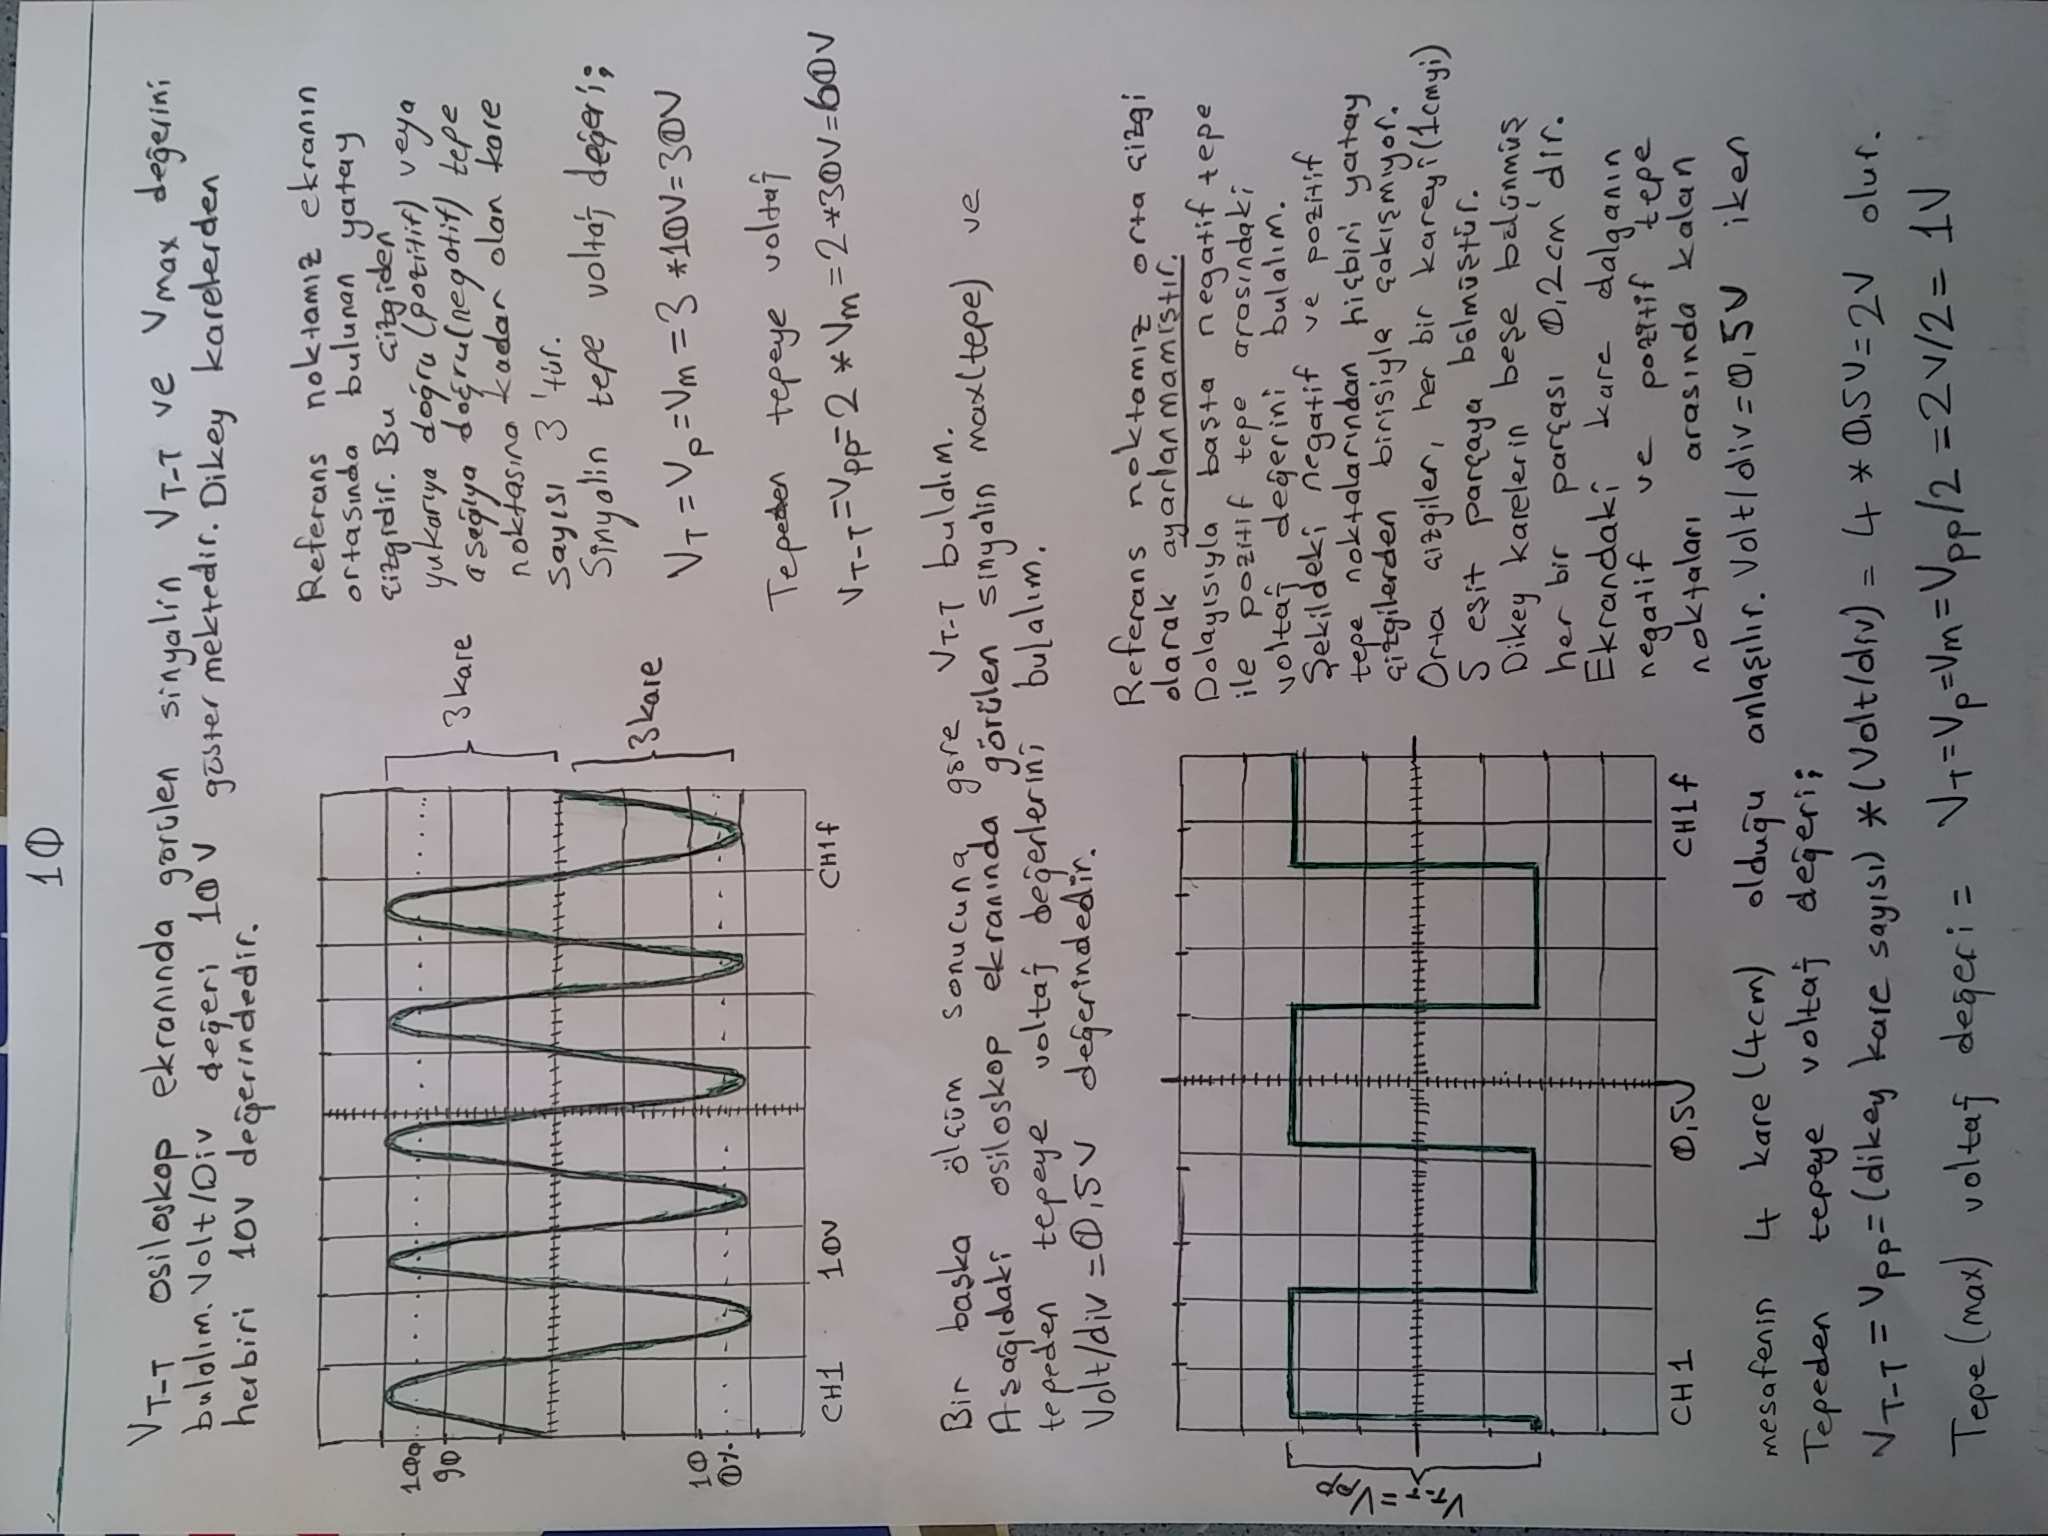 10
VT-T osiloskop ekranında görülen sinyalin VT-T ve Vmax değerini
bulalım. Volt/Div değeri 10V göstermektedir. Dikey karelerden
herbiri 10V değerindedir.
Referans noktamız ekranın
ortasında bulunan yatay
çizgidir. Bu çizgiden
yukarıya doğru (pozitif) veya
aşağıya doğru (negatif) tepe
noktasına kadar olan kare
sayısı 3'tür.
Sinyalin tepe voltaj değeri;
VT = Vp = Vm = 3 * 10V = 30V
Tepeden tepeye voltaj
VT-T = Vpp = 2 * Vm = 2 * 30V = 60V
100
90
10
0%
3 kare
3 kare
CH1 10V CH1 f
Bir başka ölçüm sonucuna göre VT-T bulalım.
Aşağıdaki osiloskop ekranında görülen sinyalin max(tepe) ve
tepeden tepeye voltaj değerlerini bulalım.
Volt/div = 0,5V değerindedir.
VT-T = Vpp
CH1 0,5V CH1 f
Referans noktamız orta çizgi
olarak ayarlanmamıştır.
Dolayısıyla başta negatif tepe
ile pozitif tepe arasındaki
voltaj değerini bulalım.
Şekildeki negatif ve pozitif
tepe noktalarından hiçbiri yatay
çizgilerden birisiyle çakışmıyor.
Orta çizgiler, her bir kareyi (1cmyi)
5 eşit parçaya bölmüştür.
Dikey karelerin beşe bölünmüş
her bir parçası 0,2cm'dir.
Ekrandaki kare dalganın
negatif ve pozitif tepe
noktaları arasında kalan
mesafenin 4 kare (4cm) olduğu anlaşılır. Volt/div = 0,5V iken
Tepeden tepeye voltaj değeri;
VT-T = Vpp = (dikey kare sayısı) * (Volt/div) = 4 * 0,5V = 2V olur.
Tepe (max) voltaj değeri = VT = Vp = Vm = Vpp/2 = 2V/2 = 1V